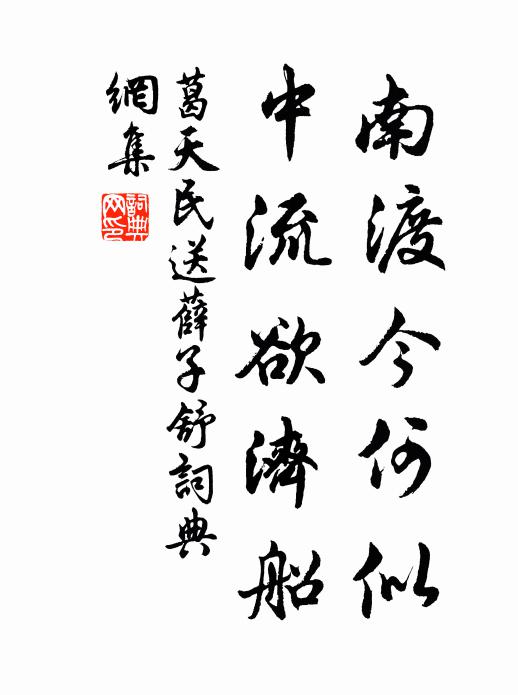 南渡今何似
中流欲濟船
葛天民送薛子舒詞典
網集
詞典網印